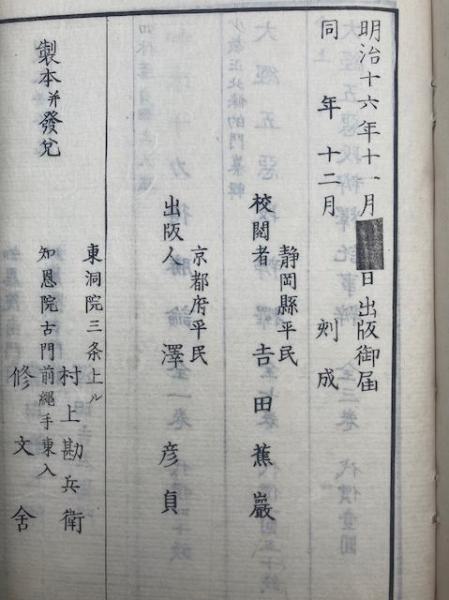 明治十六年十一月 日出版御届
同年十二月 刻成
静岡縣平民
校閲者 吉田蕉巖
京都府平民
出版人 澤彦貞
製本并發兌
東洞院三条上ル
村上勘兵衛
知恩院古門前繩手東入
修文舍